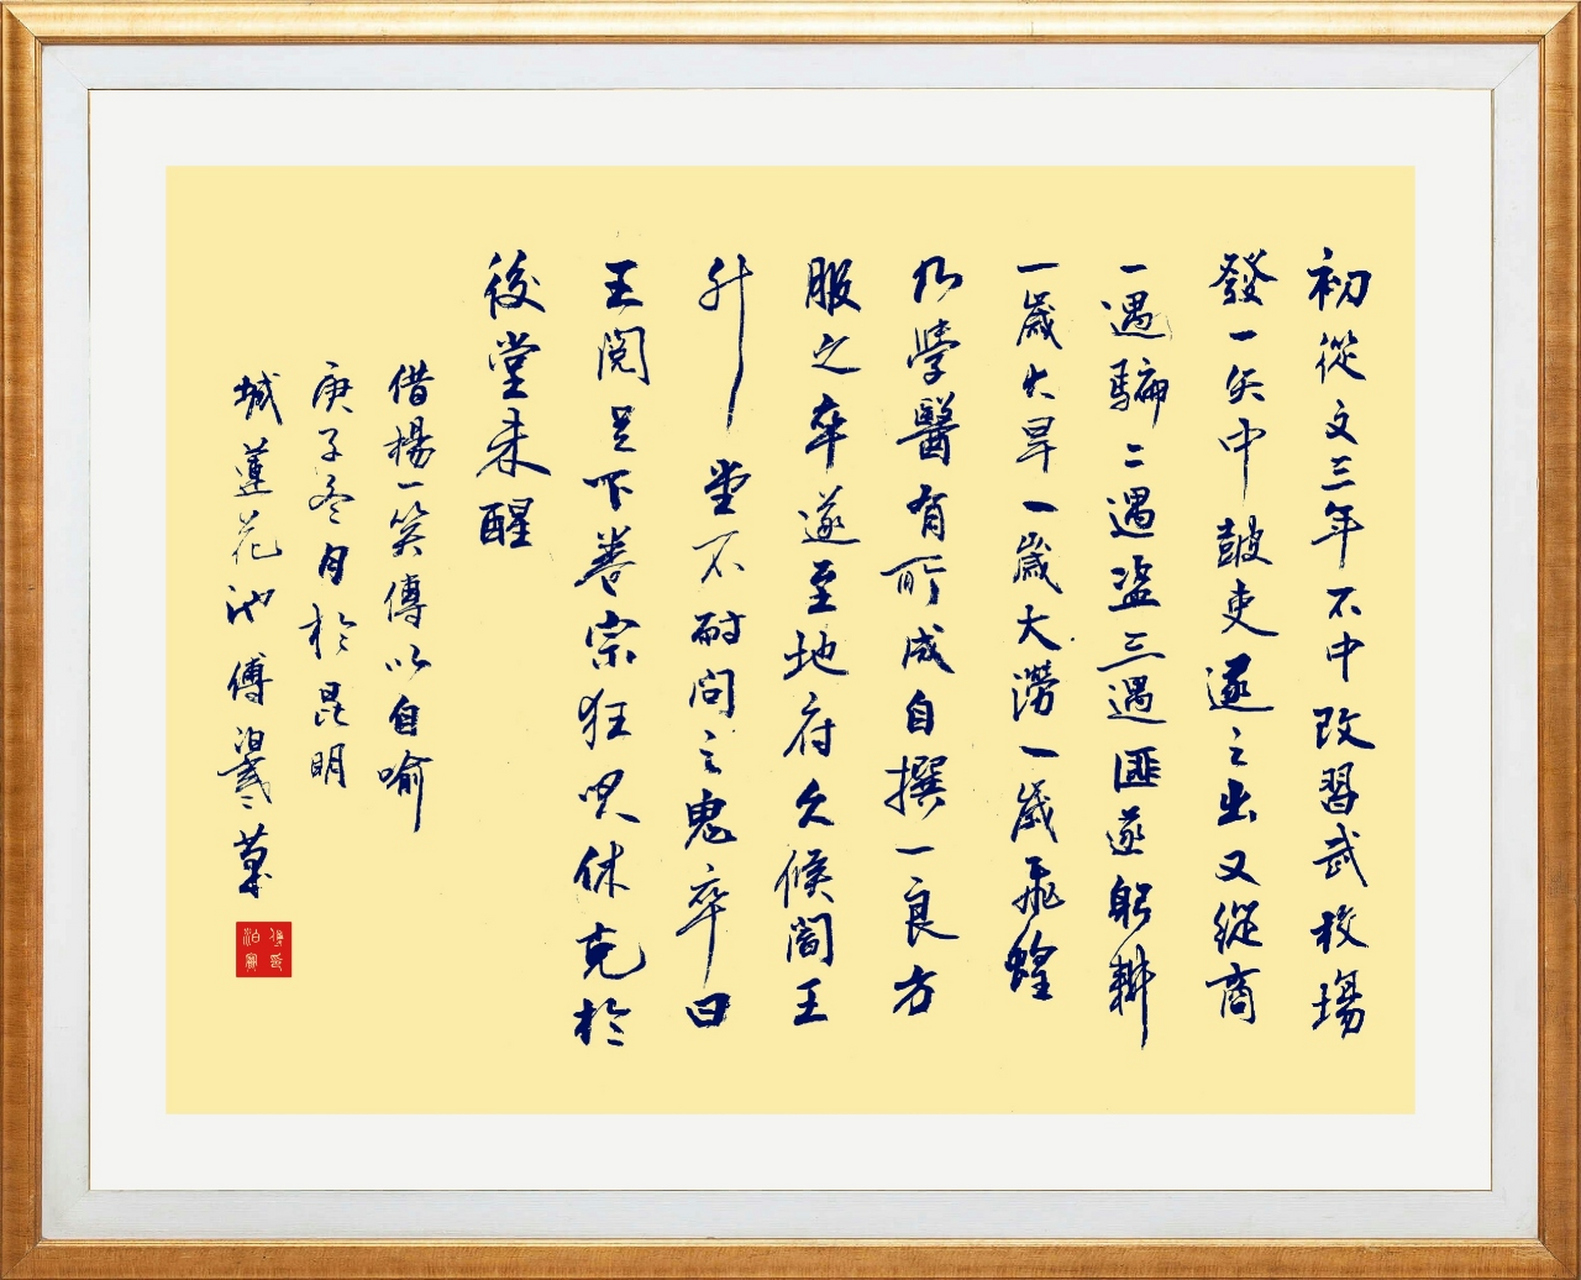 初從文三年不中改習武校場
發一矢中鼓吏逐之出又從商
一遇騙二遇盜三遇匪遂躬耕
一歲大旱一歲大澇一歲飛蝗
乃學醫有所成自撰一良方
服之卒遂至地府久候閻王
升堂不耐問之鬼卒曰
王閱足下卷宗狂咲休克於
後堂未醒
借楊一笑傳以自喻
庚子冬月於昆明
城蓮花池傅泊寒草